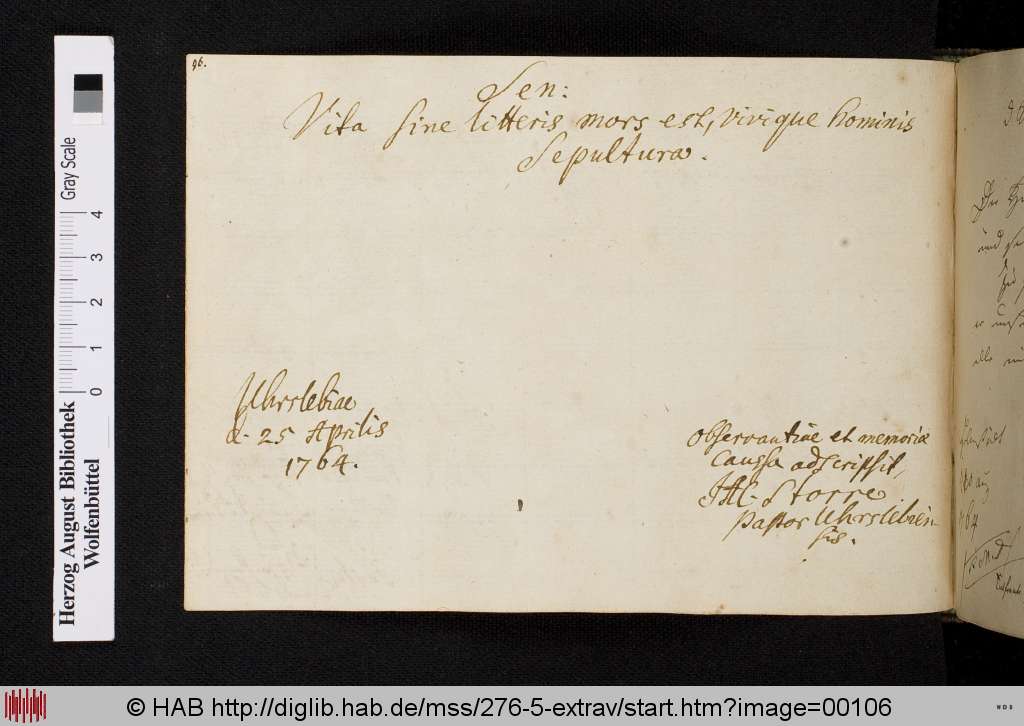 96.
Sen:
Vita sine litteris mors est, vivique hominis
Sepultura.
Uhrslebiae
d. 25 Aprilis
1764.
observantiae et memoriae
caussa adscripsit,
Storre
pastor Uhrslebien-
sis.
und
64
Gray Scale
0 1 2 3 4
Herzog August Bibliothek
Wolfenbüttel
© HAB http://diglib.hab.de/mss/276-5-extrav/start.htm?image=00106